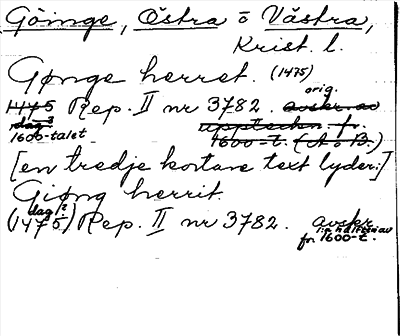 Göinge, Östra o Västra,
Krist. l.
Gønge herret. (1475)
orig.
1475 Rep. II nr 3782. avskr. av
dag ? upptecken. fr.
1600-talet 1600-t. (A o B.)
[en tredje kortare text lyder:]
Giøng herrit.
dag/?
(1475) Rep. II nr 3782. avskr
fr 1600-t.